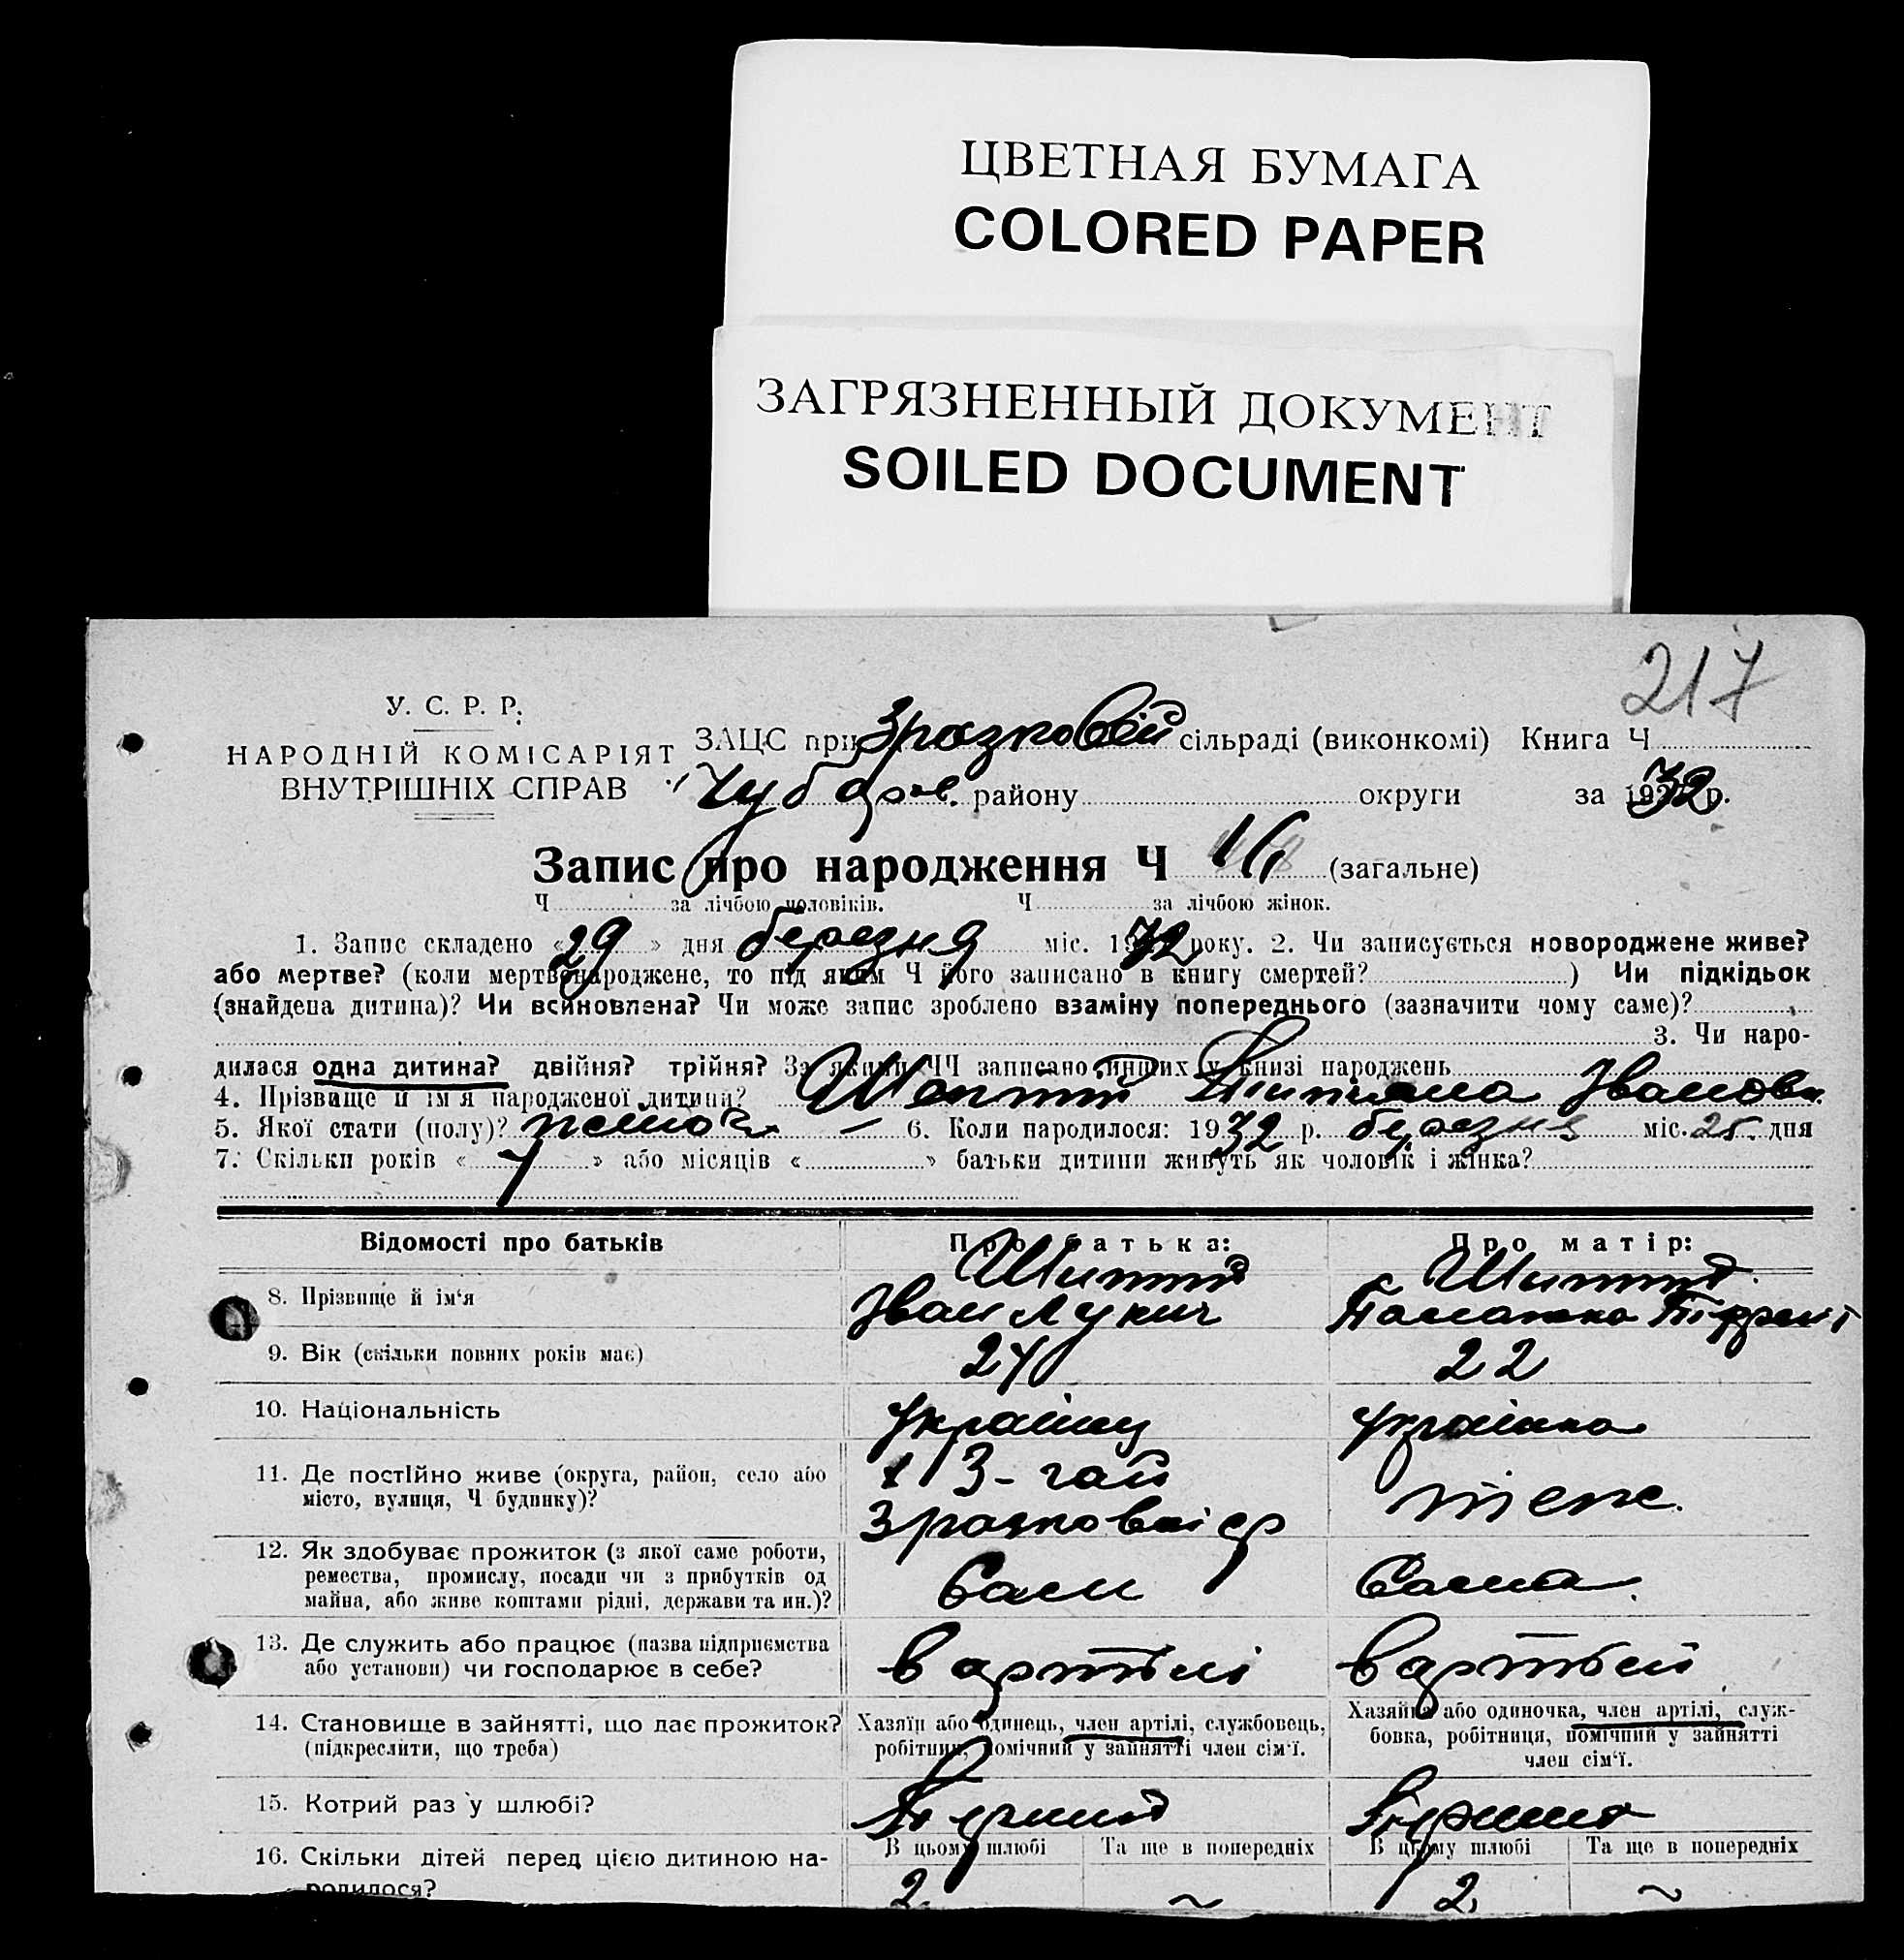 ЦВЕТНАЯ БУМАГА
COLORED PAPER
ЗАГРЯЗНЕННЫЙ ДОКУМЕНТ
SOILED DOCUMENT
217
У. С. Р. Р.
НАРОДНІЙ КОМІСАРІЯТ
ВНУТРІШНІХ СПРАВ
ЗАЦС при Зразковой сільраді (виконкомі) Книга Ч
Чубаров. району округи за 1932 р.
Запис про народження Ч 16 (загальне)
Ч за лічбою чоловіків. Ч за лічбою жінок.
1. Запис складено «29» дня березня міс. 1932 року. 2. Чи записується новороджене живе?
або мертве? (коли мертвонароджене, то під яким Ч його записано в книгу смертей? ) Чи підкідьок
(знайдена дитина)? Чи всиновлена? Чи може запис зроблено взаміну попереднього (зазначити чому саме)?
3. Чи наро-
дилася одна дитина? двійня? трійня? За якими ЧЧ записано инших у книзі народжень
4. Прізвище й ім'я народженої дитини? Івановн.
5. Якої стати (полу)? 6. Коли народилося: 1932 р. березня міс. 25. дня
7. Скільки років « » або місяців « » батьки дитини живуть як чоловік і жінка?
Відомості про батьків Про батька: Про матір:
8. Прізвище й ім'я
Іван Лукич
9. Вік (скільки повних років має) 24 22
10. Національність Українец Українка
11. Де постійно живе (округа, район, село або
місто, вулиця, Ч будинку)?
3-гай
теж.
12. Як здобуває прожиток (з якої саме роботи,
ремества, промислу, посади чи з прибутків од
майна, або живе коштами рідні, держави та ин.)?
Сам Сама
13. Де служить або працює (назва підприємства
або установи) чи господарює в себе?
в артілі в артілі
14. Становище в зайнятті, що дає прожиток?
(підкреслити, що треба)
Хазяїн або одинець, член артілі, службовець,
робітник, помічний у зайнятті член сім'ї.
Хазяйка або одиночка, член артілі, служ-
бовка, робітниця, помічний у зайнятті
член сім'ї.
15. Котрий раз у шлюбі?
16. Скільки дітей перед цією дитиною на-
родилося?
В цьому шлюбі Та ще в попередніх В цьому шлюбі Та ще в попередніх
2. ~ 2 ~